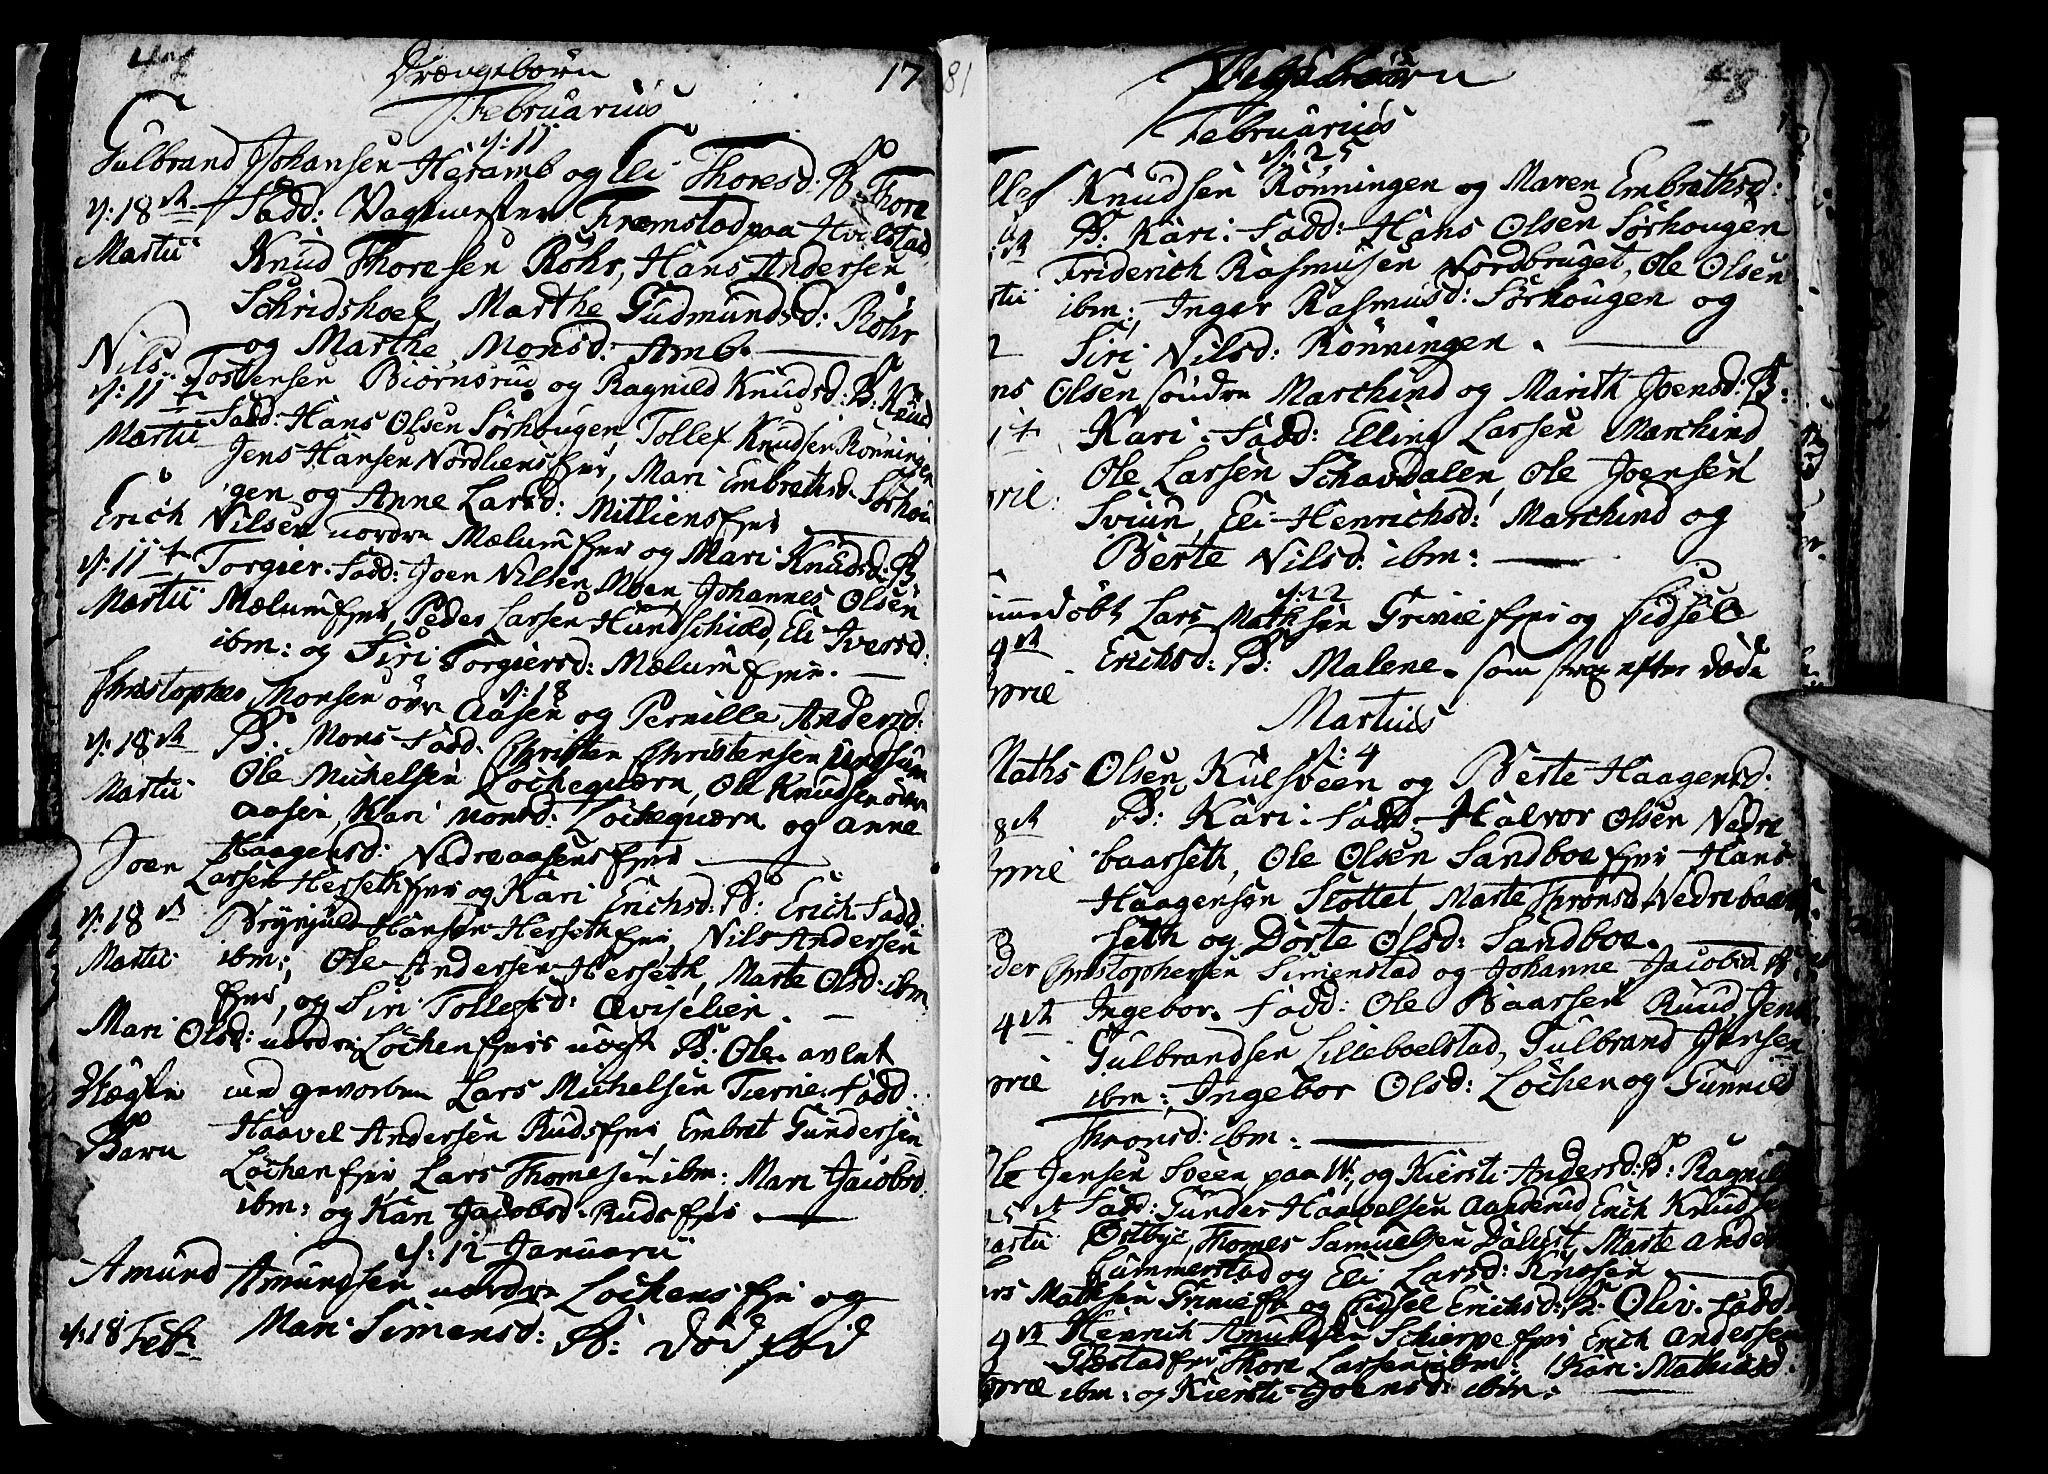 Drængebörn 17
Februarius
d: 11
Gulbrand Johansen Heramb og Eli Thoresd. B. Thore
d: 18de Fadd: Vagtmester Fremstad paa Hvelstad
Martii Knud Thoresen Röhr, Hans Andersen
Schridshoel, Marthe Gudmundsd: Röhr
og Marthe Monsd: Amb.
Nils Tostensen Biörnsrud og Ragnild Knudsd: B: Knud
d: 11te Fadd: Hans Olsen Sörhougen, Tollef Knudsen Rönningen
Martii Jens Hansen Nordliens Ejer, Mari Embretsd. Sörhou
gen og Anne Larsd: Mitliens Ejer
Erich Nilsen nordre Mælum Ejer og Mari Knudsd: B:
d: 11te Torgier. Fadd: Joen Nilsen Moen, Johannes Olsen
Martii Mælum Ejer, Peder Larsen Hundschiold, Eli Iversd:
ibm: og Siri Torgiersd: Mælum Ejer.
d: 18
Christopher Monsen övr Aasen og Pernille Andersd:
d: 18de B: Mons Fadd: Christen Christensen Undsum
Martii Ole Michelsen Lochequærn, Ole Knudsen övre
Aasen, Kari Monsd: Lochequærn og Anne
Haagensd: Nedre aasens Ejer
Joen Larsen Herseth Ejer og Kari Erichsd: B: Erich Fadd:
d: 18de Brynjuld Hansen Herseth Ejer, Nils Andersen
Martii ibm:, Ole Andersen Herseth, Marte Olsd: ibm
Ejer, og Siri Tollefsd: Qviselien.
Mari Olsd: nordre Löchen Ejer uægt B: Ole avlet
Uægte ved gevorben Lars Michelsen Tierne. Fadd:
Barn Haavel Andersen Ruds Ejer, Embret Gundersen
Löchen Ejer, Lars Thomesen ibm: Mari Jacobsd:
ibm: og Kari Jacobsd. Ruds Ejer
d: 12 Januarii
Amund Amundsen nordre Löchens Ejer og
d: 18 Feb: Mari Simensd: B: död föd
81
Februarius
d: 25
Knudsen Rönningen og Maren Embrethsd:
B: Kari. Fadd: Hans Olsen Sörhougen
Friderich Rasmusen Nordbruget, Ole Olsen
ibm:, Inger Rasmusd: Sörhougen og
Siri Nilsd: Rönningen.
Olsen söndre Marchind og Marith Joensd: B:
Kari. Fadd: Elling Larsen Marchind
Ole Larsen Schavdalen, Ole Joensen
Sviun, Eli Henrichsd: Marchind og
Berte Nilsd: ibm:
d: 22
Lars Mathsen Grinie Ejer og Sidsele
Erichsd: B: Malene. som strax efter döde
Martius
d: 4
Maths Olsen Kulsveen og Berte Haagensd:
B: Kari. Fadd: Halvor Olsen Nedre
baarseth, Ole Olsen Sandboe Ejer Hans
Haagensen Slottet, Marte Thronsd: Nedre baar
seth og Dorte Olsd: Sandboe.
Christophersen Simenstad og Johanne Jacobsd: B:
Ingebor. Fadd: Ole Baarsen Ruud, Jens
Gulbrandsen Lilleboelstad, Gulbrand Jensen
ibm: Ingebor Olsd: Löchen og Gunnild
Thronsd: ibm:
Ole Jensen Sveen paa W: og Kiersti Andersd: B: Ragnild
25de Fadd: Gunder Haavelsen Aanderud, Erich Knudsen
Martii Östbye, Thomes Samuelsen Dalust, Marte Anders
Lummerstad og Eli Larsd: Knosen
Lars Mathsen Grinie Ejer og Sidsel Erichsd: B: Oliv. Fadd:
9de Henrich Amundsen Schierpe Ejer, Erich Andersen
Glæstad Ejer, Thore Larsen ibm: Kari Mathiasd:
ibm: og Kiersti Joensd: ibm: